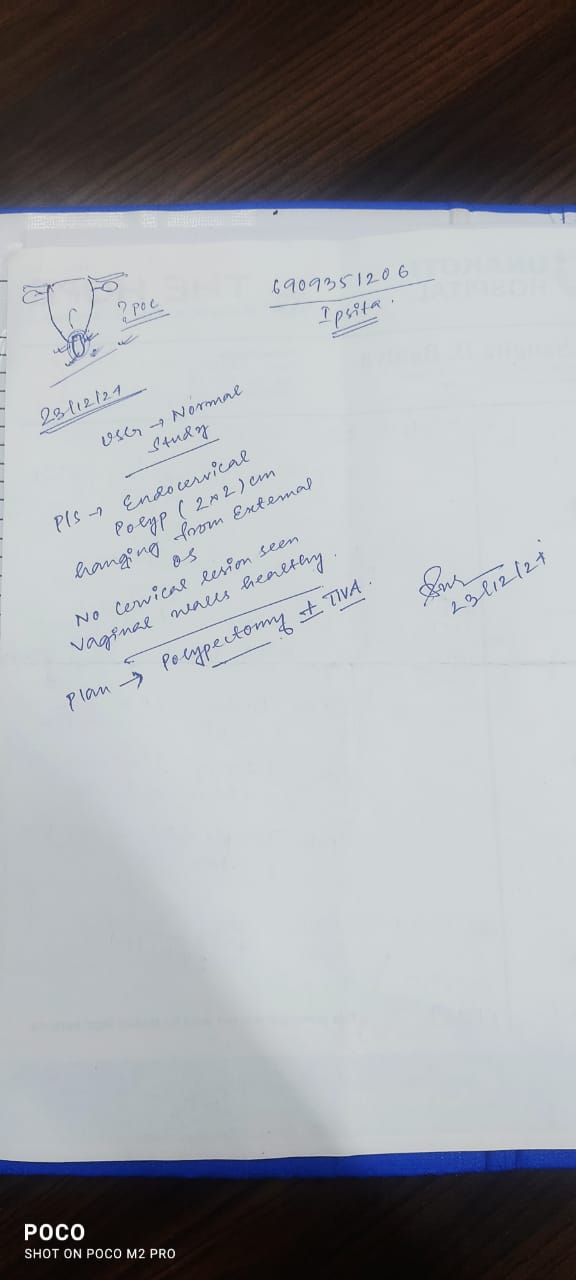 6909351206
Ipsita.
? POC
23/12/21
USG → Normal
Study
P/S → Endocervical
Polyp (2×2) cm
hanging from External
os
No cervical lesion seen
Vaginal walls healthy.
Plan → Polypectomy TIVA.
23/12/21
POCO
SHOT ON POCO M2 PRO